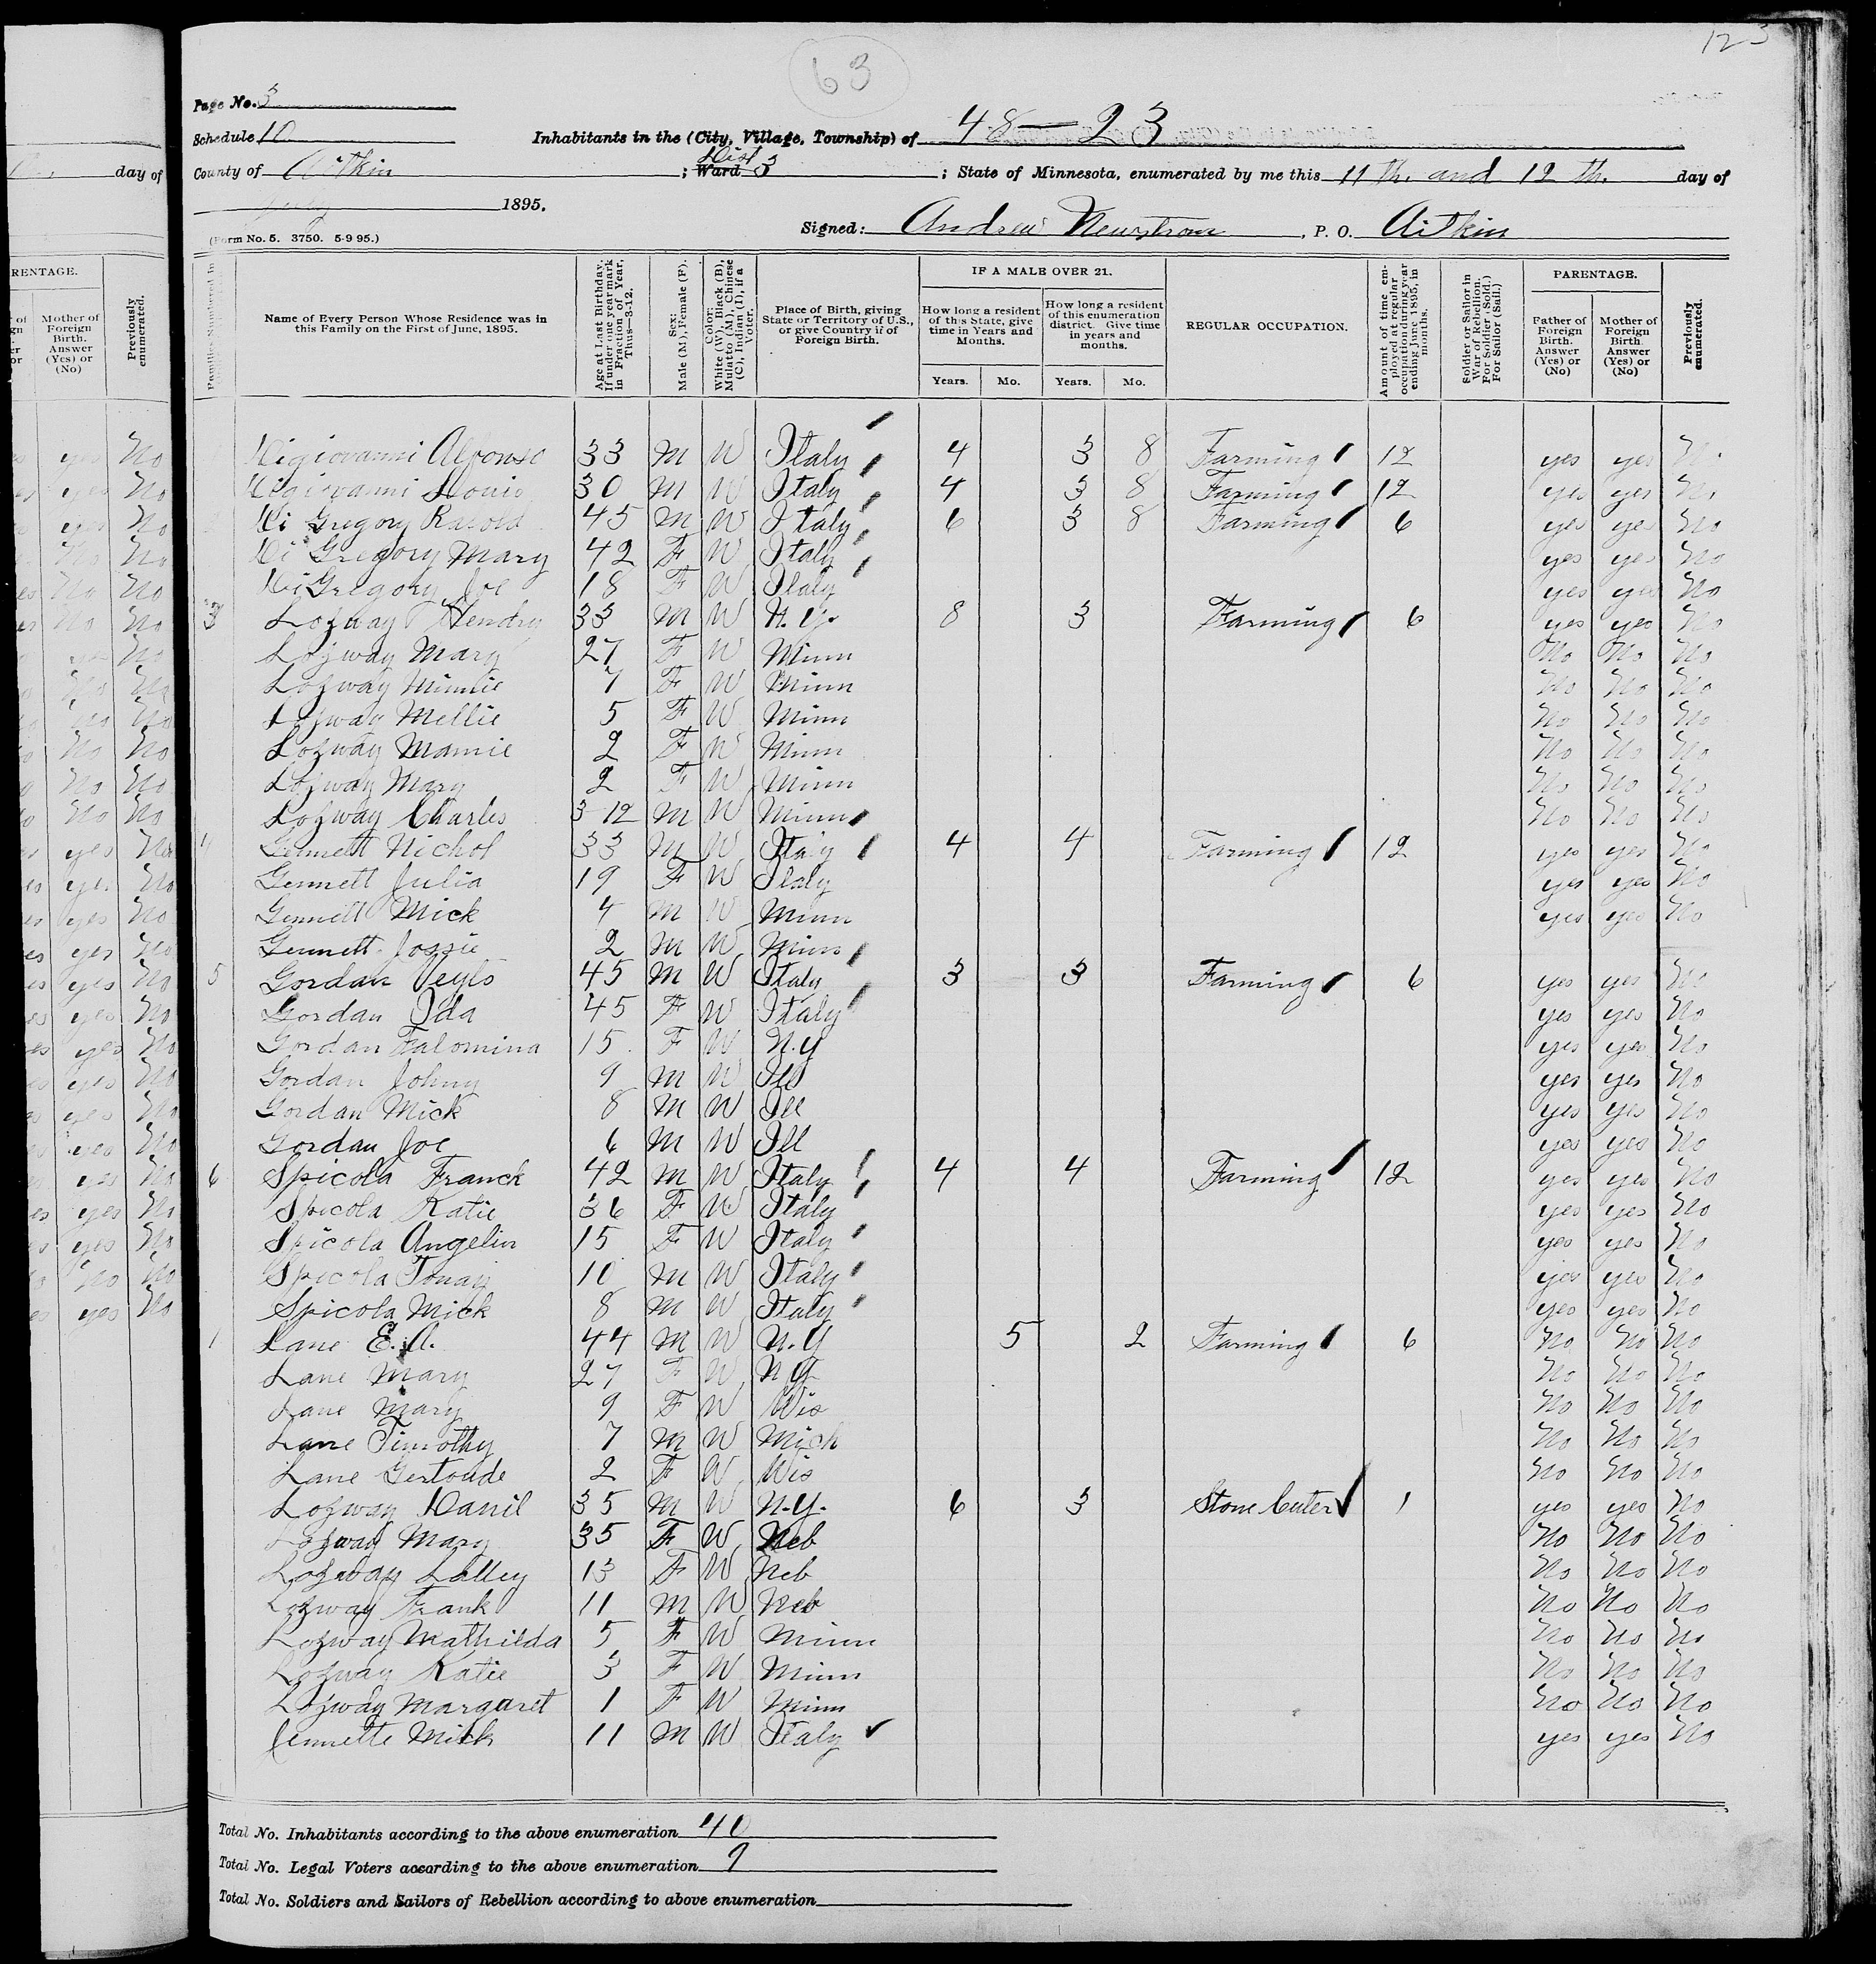 123
63
Page No. 3
Schedule 10
Inhabitants in the (City, Village, Township) of 48-23
County of Aitkin ; Ward Dist 3 ; State of Minnesota, enumerated by me this 11 th. and 12 th. day of
July 1895.
Signed: Andrew Newstrom, P. O. Aitkin
(Form No. 5. 3750. 5-9 95.)
Families Numbered in
Name of Every Person Whose Residence was in this Family on the First of June, 1895.
Age at Last Birthday. If under one year mark in Fraction of Year, Thus—3-12.
Sex: Male (M), Female (F).
Color: White (W), Black (B), Mulatto (M), Chinese (C), Indian (I), if a Voter.
Place of Birth, giving State or Territory of U.S., or give Country if of Foreign Birth.
IF A MALE OVER 21.
How long a resident of this State, give time in Years and Months.
How long a resident of this enumeration district. Give time in years and months.
Years. Mo. Years. Mo.
REGULAR OCCUPATION.
Amount of time employed at regular occupation during year ending June 1895, in months.
Soldier or Sailor in War of Rebellion. For Soldier (Sold.) For Sailor (Sail.)
PARENTAGE.
Father of Foreign Birth. Answer (Yes) or (No)
Mother of Foreign Birth. Answer (Yes) or (No)
Previously enumerated.
Digiovanni Alfonso 33 M W Italy 4 3 8 Farming 12 yes yes No
Digiovanni Louis 30 M W Italy 4 3 8 Farming 12 yes yes No
Di Gregory 45 M W Italy 6 3 8 Farming 6 yes ye No
Di Gregory Mary 42 F W Italy yes yes No
Di Gregory Joe 18 F W Italy yes yes No
3 Lozway Hendry 33 M W N. Y. 8 3 Farming 6 yes yes No
Lozway Mary 27 F W Minn No No No
Lozway Minnie 7 F W Minn No No No
Lozway Mellie 5 F W Minn No No No
Lozway Mamie 2 F W Minn No No No
Lozway Mary 2 F W Minn No No No
Lozway Charles 3-12 M W Minn No No No
4 Gennett Nichol 33 M W Italy 4 4 Farming 12 yes yes No
Gennett Julia 19 F W Italy yes yes No
Gennett Mick 4 M W Minn yes yes No
Gennett Jossie 2 M W Minn
5 Gordan Veylo 45 M W Italy 3 3 Farming 6 yes yes No
Gordan Ida 45 F W Italy yes yes No
Gordan Falomina 15 F W N.Y yes yes No
Gordan Johny 9 M W Ill yes yes No
Gordan Mick 8 M W Ill yes yes No
Gordan Joe 6 M W Ill yes yes No
6 Spicola Franck 42 M W Italy 4 4 Farming 12 yes yes No
Spicola Katie 36 F W Italy yes yes No
Spicola Angelin 15 F W Italy yes yes No
Spicola Tonay 10 M W Italy yes yes No
Spicola Mick 8 M W Italy yes yes No
1 Lane E. A. 44 M W N.Y 5 2 Farming 6 No No No
Lane Mary 27 F W N.Y No No No
Lane Mary 9 F W Wis No No No
Lane Timothy 7 M W Mich No No No
Lane Gertoude 2 F W Wis No No No
Lozway Danil 35 M W N.Y. 6 3 Stone Cuter 1 yes yes No
Lozway Mary 35 F W Neb No No No
Lozway Lalley 13 F W Neb No No No
Lozway Frank 11 M W Neb No No No
Lozway Mathilda 5 F W Minn No No No
Lozway Katie 3 F W Minn No No No
Lozway Margaret 1 F W Minn No No No
Jennette Mick 11 M W Italy yes yes No
Total No. Inhabitants according to the above enumeration 40
Total No. Legal Voters according to the above enumeration 9
Total No. Soldiers and Sailors of Rebellion according to above enumeration